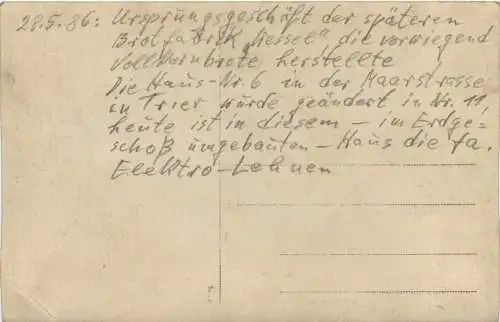 28.5.86: Ursprungsgeschäft der späteren
Brotfabrik „Hessel" die vorwiegend
Vollkornbrote herstellte
Die Haus-Nr. 6 in der Maarstrasse
in Trier wurde geändert in Nr. 11,
heute ist in diesem – im Erdge-
schoß umgebauten – Haus die Fa.
Elektro-Lehnen